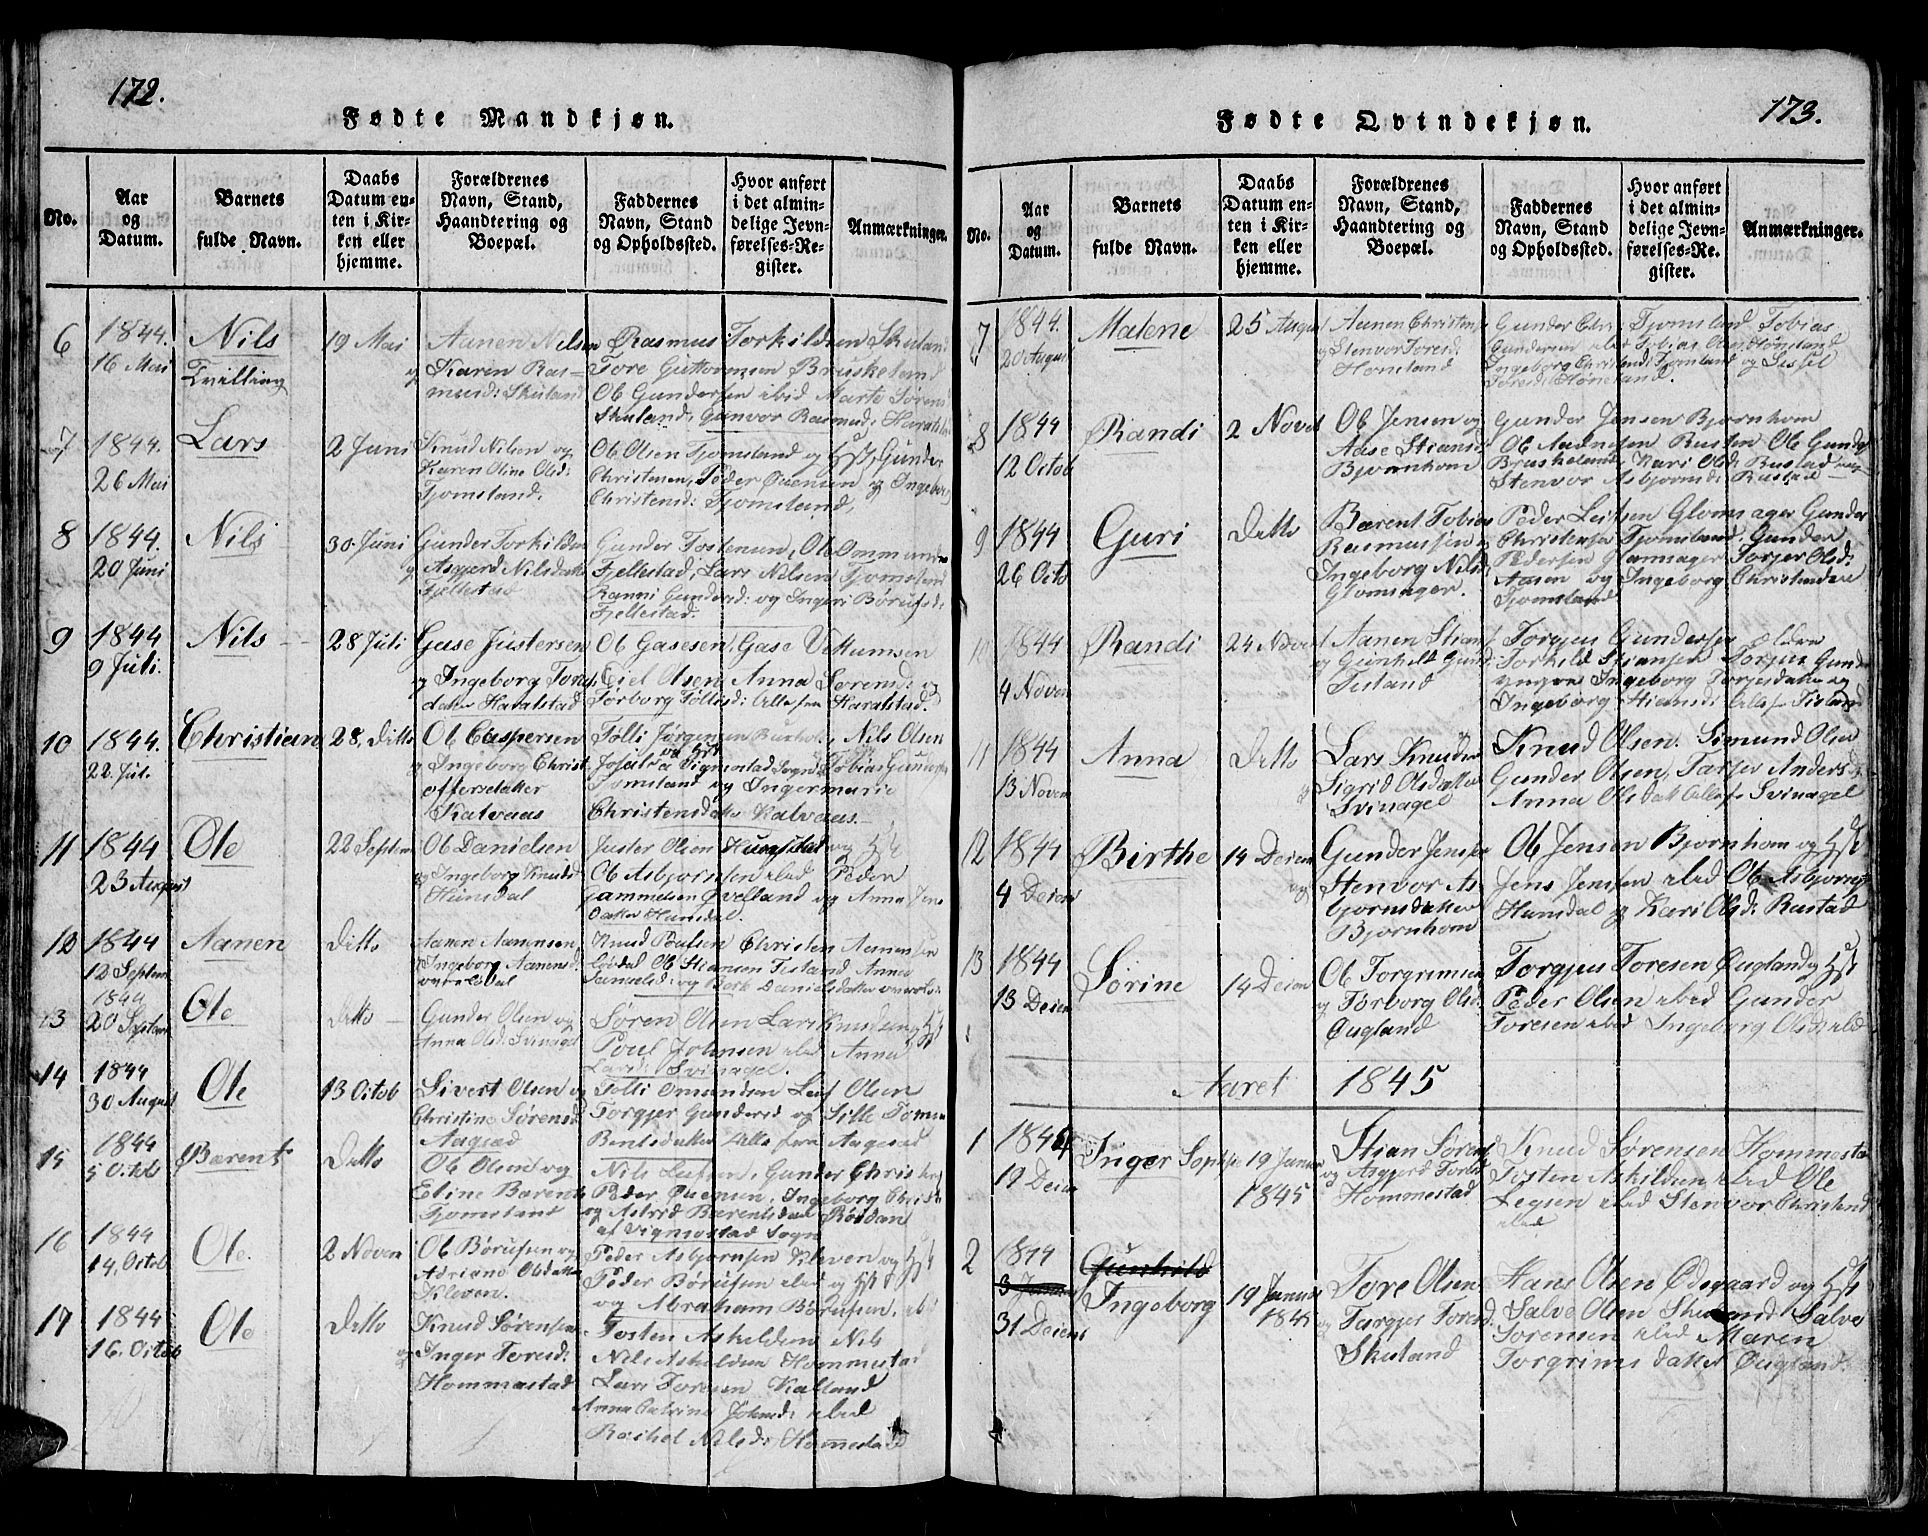 172.
Fødte Mandkjøn.
No.
Aar
og
Datum.
Barnets
fulde Navn.
Daabs
Datum en-
ten i Kir-
ken eller
hjemme.
Forældrenes
Navn, Stand,
Haandtering og
Boepæl.
Faddernes
Navn, Stand
og Opholdssted.
Hvor anført
i det almin-
delige Jevn-
førelses-Re-
gister.
Anmærkninger.
6
1844.
16 Mai
Nils
Tvilling
19 Mai
Aanen Nilsen
og Karen Ras-
musd: Skuland
Rasmus Torkildsen Skuland
Tore Guttormsen Bruskeland
Ole Gundersen ibid Marte Sørens
Skuland, Gunvor Rasmusd:
7
1844.
26 Mai
Lars
2 Juni
Knud Nilsen og
Karen Oline Olsd:
Tjomsland.
Ole Olsen Tjomsland og Hst, Gunder
Christensen, Peder Ouensen og Ingeborg
Christensd: Tjomsland.
8
1844
20 Juni
Nils
30 Juni
Gunder Torkildsen
og Asgjerd Nilsdatter
Fjellestad
Gunder Tostensen, Ole Ommundsen
Fjellestad, Lars Nilsen Tjomsland
Ranni Gundersd: og Ingeri Børufsd:
Fjellestad.
9
1844
9 Juli.
Nils
28 Juli
Gase Justersen
og Ingeborg
datter Haralstad
Ole Gasesen, Gase
Eiel Olsen Anna Sørensd: og
Torborg Tollisd: Alle fra Haralstad.
10
1844.
22 Jul.
Christian
28, Ditto
Ole Caspersen
og Ingeborg Christ
offersdatter
Kalvaas
Tolli Jørgensen, Nils Olsen
Vigmostad Sogn Tobias Gundersen
Tjomsland og Ingermarie
Christensdatter Kalvaas.
11
1844
23 August
Ole
22 Septem
Ole Danielsen
og Ingeborg Knudsd
Hunsdal
Juster Olsen Hunsdal og Hst
Ole Asbjørnsen ibid Peder
Gammelsen Øvelland og Anna Jens
datter Hunsdal.
12
1844
12 Septem
Aanen
Ditto
Aanen Aanensen
og Ingeborg Aanensd:
Knud Poulsen Christen Aanensen
Ole Stiansen Tisland Anna
Samuelsd: og Berte Danielsdatter
13
1844
20 Septem
Ole
Ditto
Gunder Olsen og
Anna Olsd: Svinagel
Søren Olsen Lars Knudsen og Hst
Poul Johnsen ibid Anna
Larsd: Svinagel.
14
1844
30 August
Ole
13 Octob
Sivert Olsen og
Christine Sørensd
Aagesad
Tolli Omundsen Leif Olsen
Torgjer Gundersd og Sille Tomine
Berntsdatter Alle fra Aagesad
15
1844
5 Octob
Bærent
Ditto
Ole Olsen og
Eline Bærents
Tjomsland
Nils Leifsen, Gunder Christens
Peder Ouensen, Ingeborg Christens
og Astrid Bærentsdat Røsdan
af Vigmostad Sogn
16
1844
14. Octob
Ole.
2 Noven
Ole Børufsen og
Adriane Olsdatter
Kleven.
Peder Asbjørnsen Kleven og Hst
Peder Børufsen ibid og Hst
og Abraham Børufsen, ibid
17
1844
16. Octob
Ole
Ditto
Knud Sørensen
og Inger Toresd:
Hommestad
Tosten Askildsen Nils
Nils Askildsen Hommestad
Lars Toresen Kalland
Anna Catrina Johnsd: ibid
Rachel Nilsd: Hommestad
173.
Fødte Qvindekjøn.
No.
Aar
og
Datum.
Barnets
fulde Navn.
Daabs
Datum en-
ten i Kir-
ken eller
hjemme.
Forældrenes
Navn, Stand,
Haandtering og
Boepæl.
Faddernes
Navn, Stand
og Opholdssted.
Hvor anført
i det almin-
delige Jevn-
førelses-Re-
gister.
Anmærkninger.
7
1844.
20 August
Malene
25 August
Aanen Christens
og Stenvor Toresd:
Honeland
Gunder Chr Tjomsland Tobias
Gundersen ibid Tobias Olsen Honeland
Ingeborg Christensd: Tjomsland og Sissel
Toresd: Honeland.
8
1844
12 Octob
Randi
2 Novei
Ole Jensen og
Aase Stiansd
Bjørnhom
Gunder Jensen Bjørnhom
Ole Aadnesen Rustad Ole Gunders
Bruskeland, Kari Olsd: Rustad og
Stenvor Asbjørnsd: Rustad
9
1844
26 Octo
Guri
Ditto
Bærent Tobias
Rasmussen og
Ingeborg Nilsd
Glomsager.
Peder Leifsen Glomsager Gunder
Christensen Tjomsland, Gunder
Pedersen Glomsager Torjer Olsd:
Aasen og Ingeborg Christensdatter
Tjomsland
10
1844
4 Noven
Randi
24 Novei
Aanen Stians
og Gunhild Gund
Tisland
Torgjus Gundersen ældre
Torkild Stiansen Torjus Gunder
yngre Ingeborg Torjusdatter og
Ingeborg Stiansd: Alle fr Tisland
11
1844
13 Noven
Anna
Ditto
Lars Knudsen
og Sigrid Olsdatter
Svinagel
Knud Olsen. Simund Olsen
Gunder Olsen, Tarjer Andersd
Anna Olsdatt Alle fr Svinagel
12
1844
4 Decem
Birthe
14 Decem
Gunder Jensen
og Stenvor As
bjørnsdatter
Bjørnhom
Ole Jensen Bjørnhom og Hst
Jens Jensen ibid Ole Asbjørnsen
Hunsdal og Kari Olsd: Rustad
13
1844
13 Decem
Sørine
14 Decem
Ole Torgrimsen
og Torborg Olsd.
Øugland
Torgjus Toresen Øugland og Hst
Peder Olsen ibid Gunder
Toresen ibid Ingeborg Olsd: ibid
Aaret 1845
1
1844
19 Decem
Inger Sophie
19 Januar
1845
Stian Sørens
og Asgjerd Torkils
Hommestad
Knud Sørensen Hommestad
Tosten Askildsen, ibid Ole
Legsen ibid Stenvor Christensd
ibid
2
1844
3 Januar
31 Decem
Gunhild
Ingeborg
19 Januar
1845
Tore Olsen
og Targjer Toresd.
Skuland
Hans Olsen Ødegaard og Hst
Salve Olsen Skuland Salve
Sørensen ibid Maren
Torgrims datter Øugland.